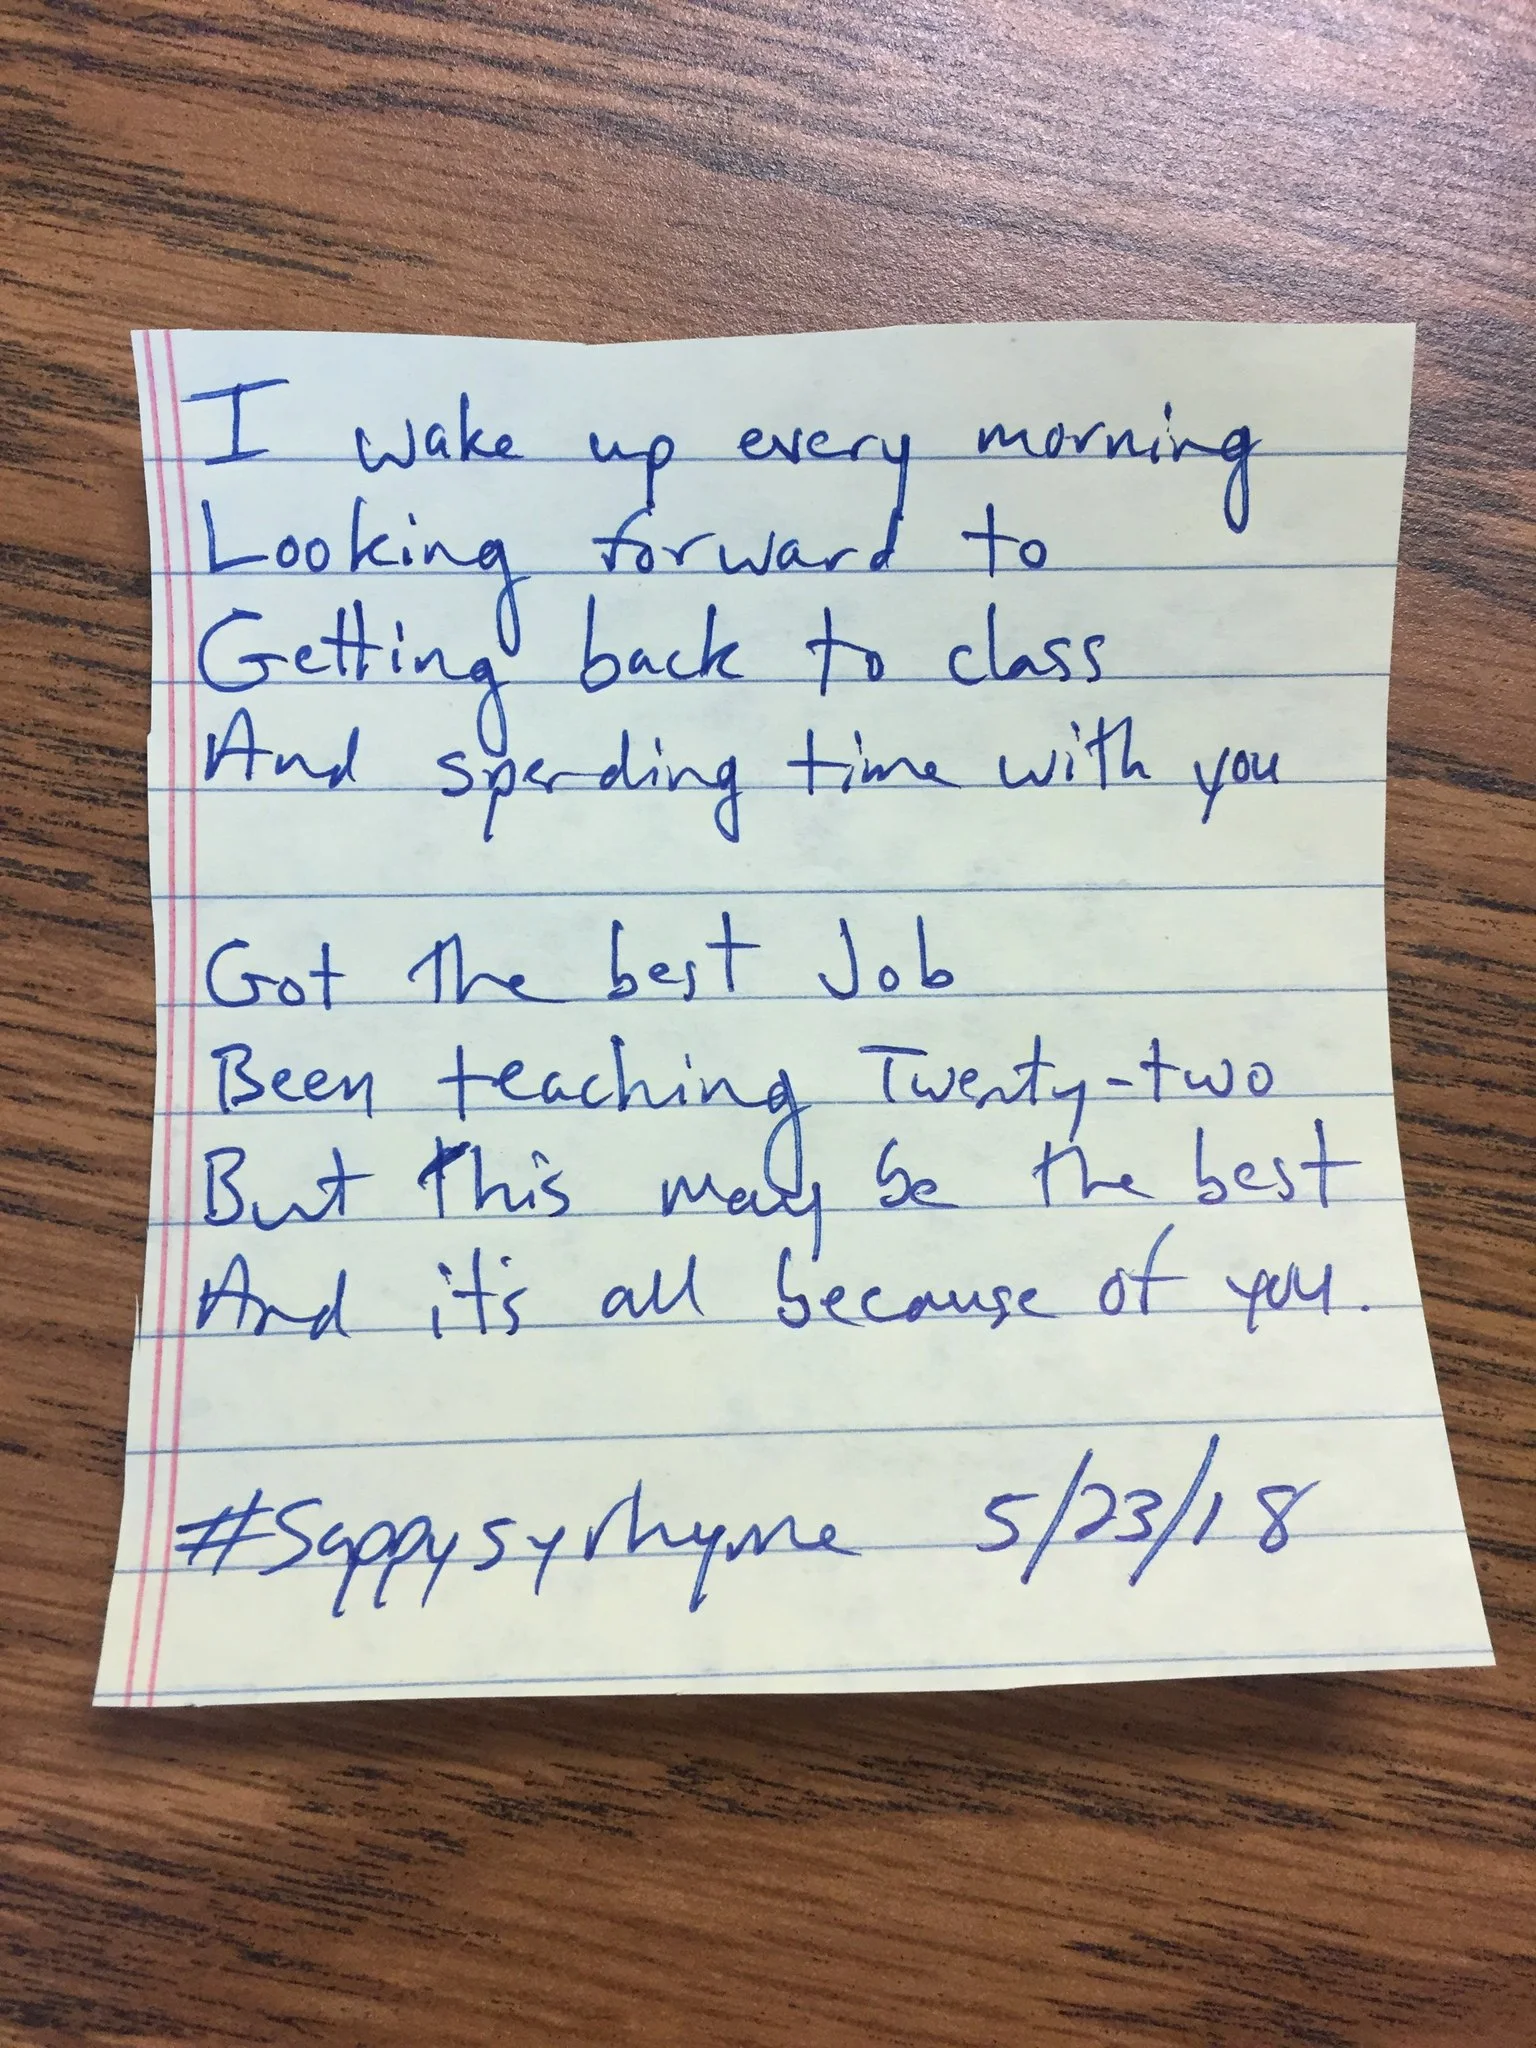 I wake up every morning
Looking forward to
Getting back to class
And spending time with you
Got the best Job
Been teaching Twenty-two
But this may be the best
And it's all because of you.
#Sappysyrhyme 5/23/18